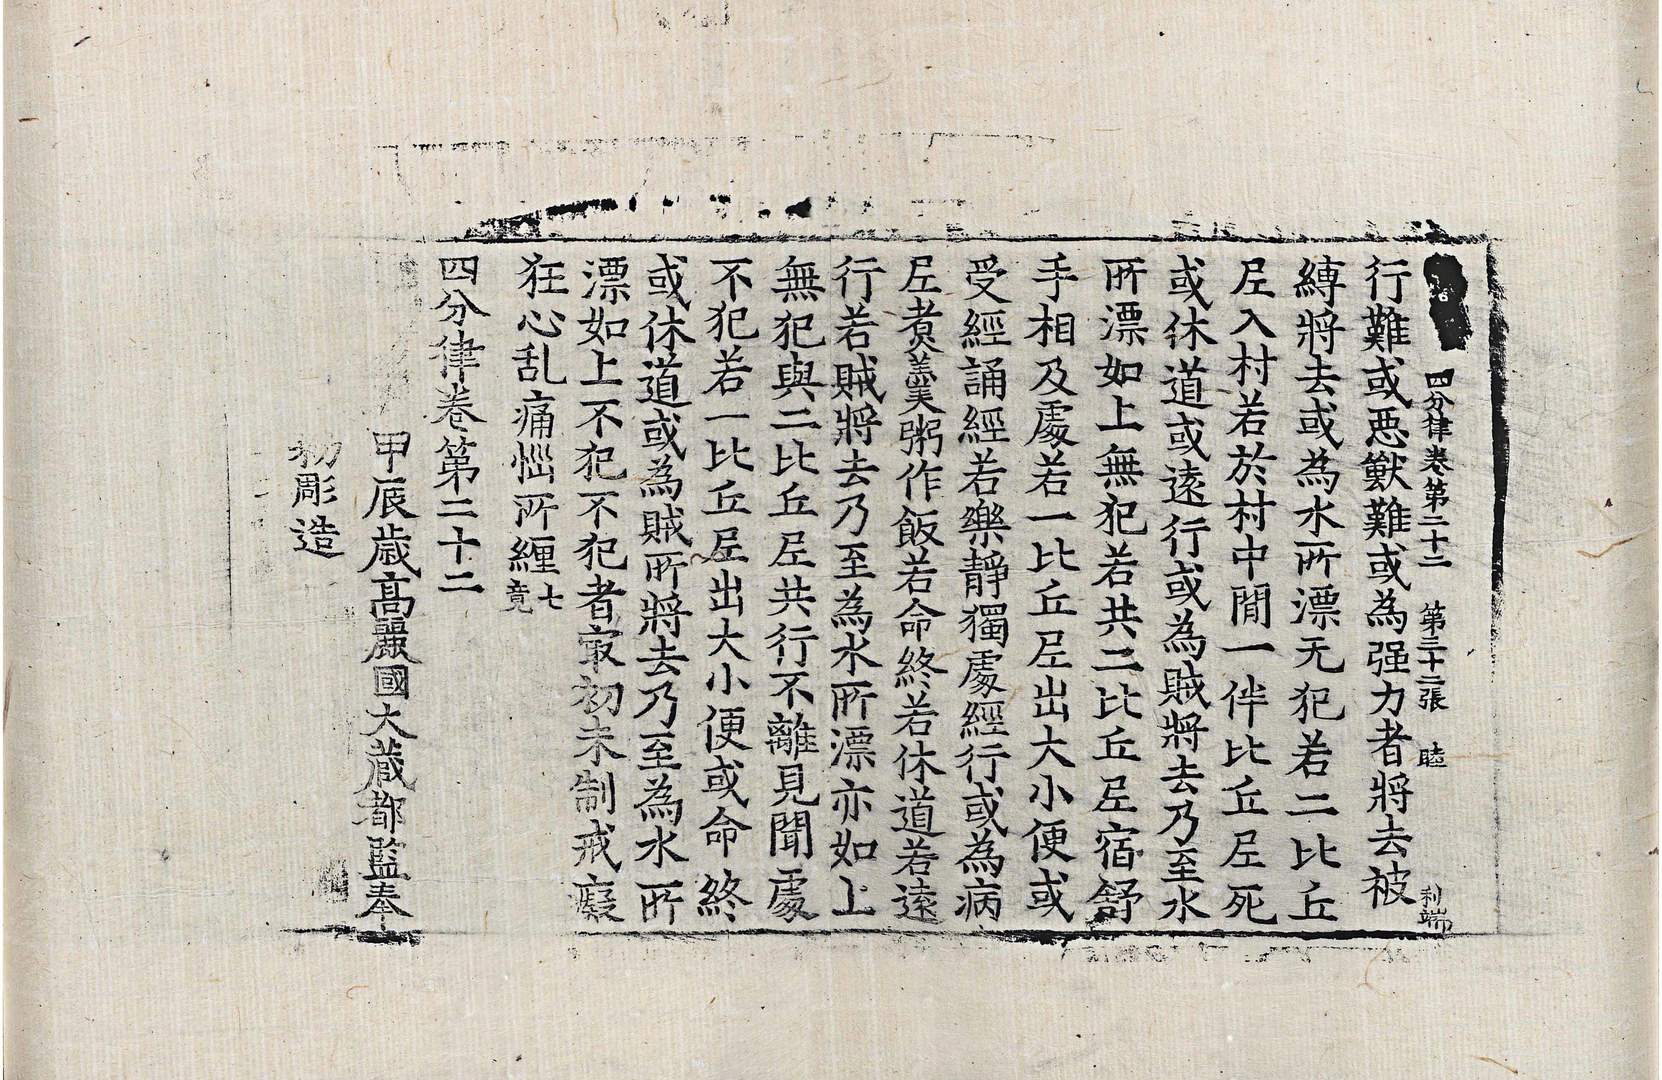 四分律卷第二十二 第三十二張 睦 利端
行難或悪獸難或為强力者將去被
縛將去或為水所漂无犯若二比丘
尼入村若於村中間一伴比丘尼死
或休道或遠行或為賊將去乃至水
所漂如上無犯若共二比丘尼宿舒
手相及處若一比丘尼出大小便或
受經誦經若樂靜獨處經行或為病
尼煮羹粥作飯若命終若休道若遠
行若賊將去乃至為水所漂亦如上
無犯與二比丘尼共行不離見聞處
不犯若一比丘尼出大小便或命終
或休道或為賊所將去乃至為水所
漂如上不犯不犯者㝡初未制戒癡
狂心乱痛惱所纏七竟
四分律卷第二十二
甲辰歲高麗國大藏都監奉
勑彫造